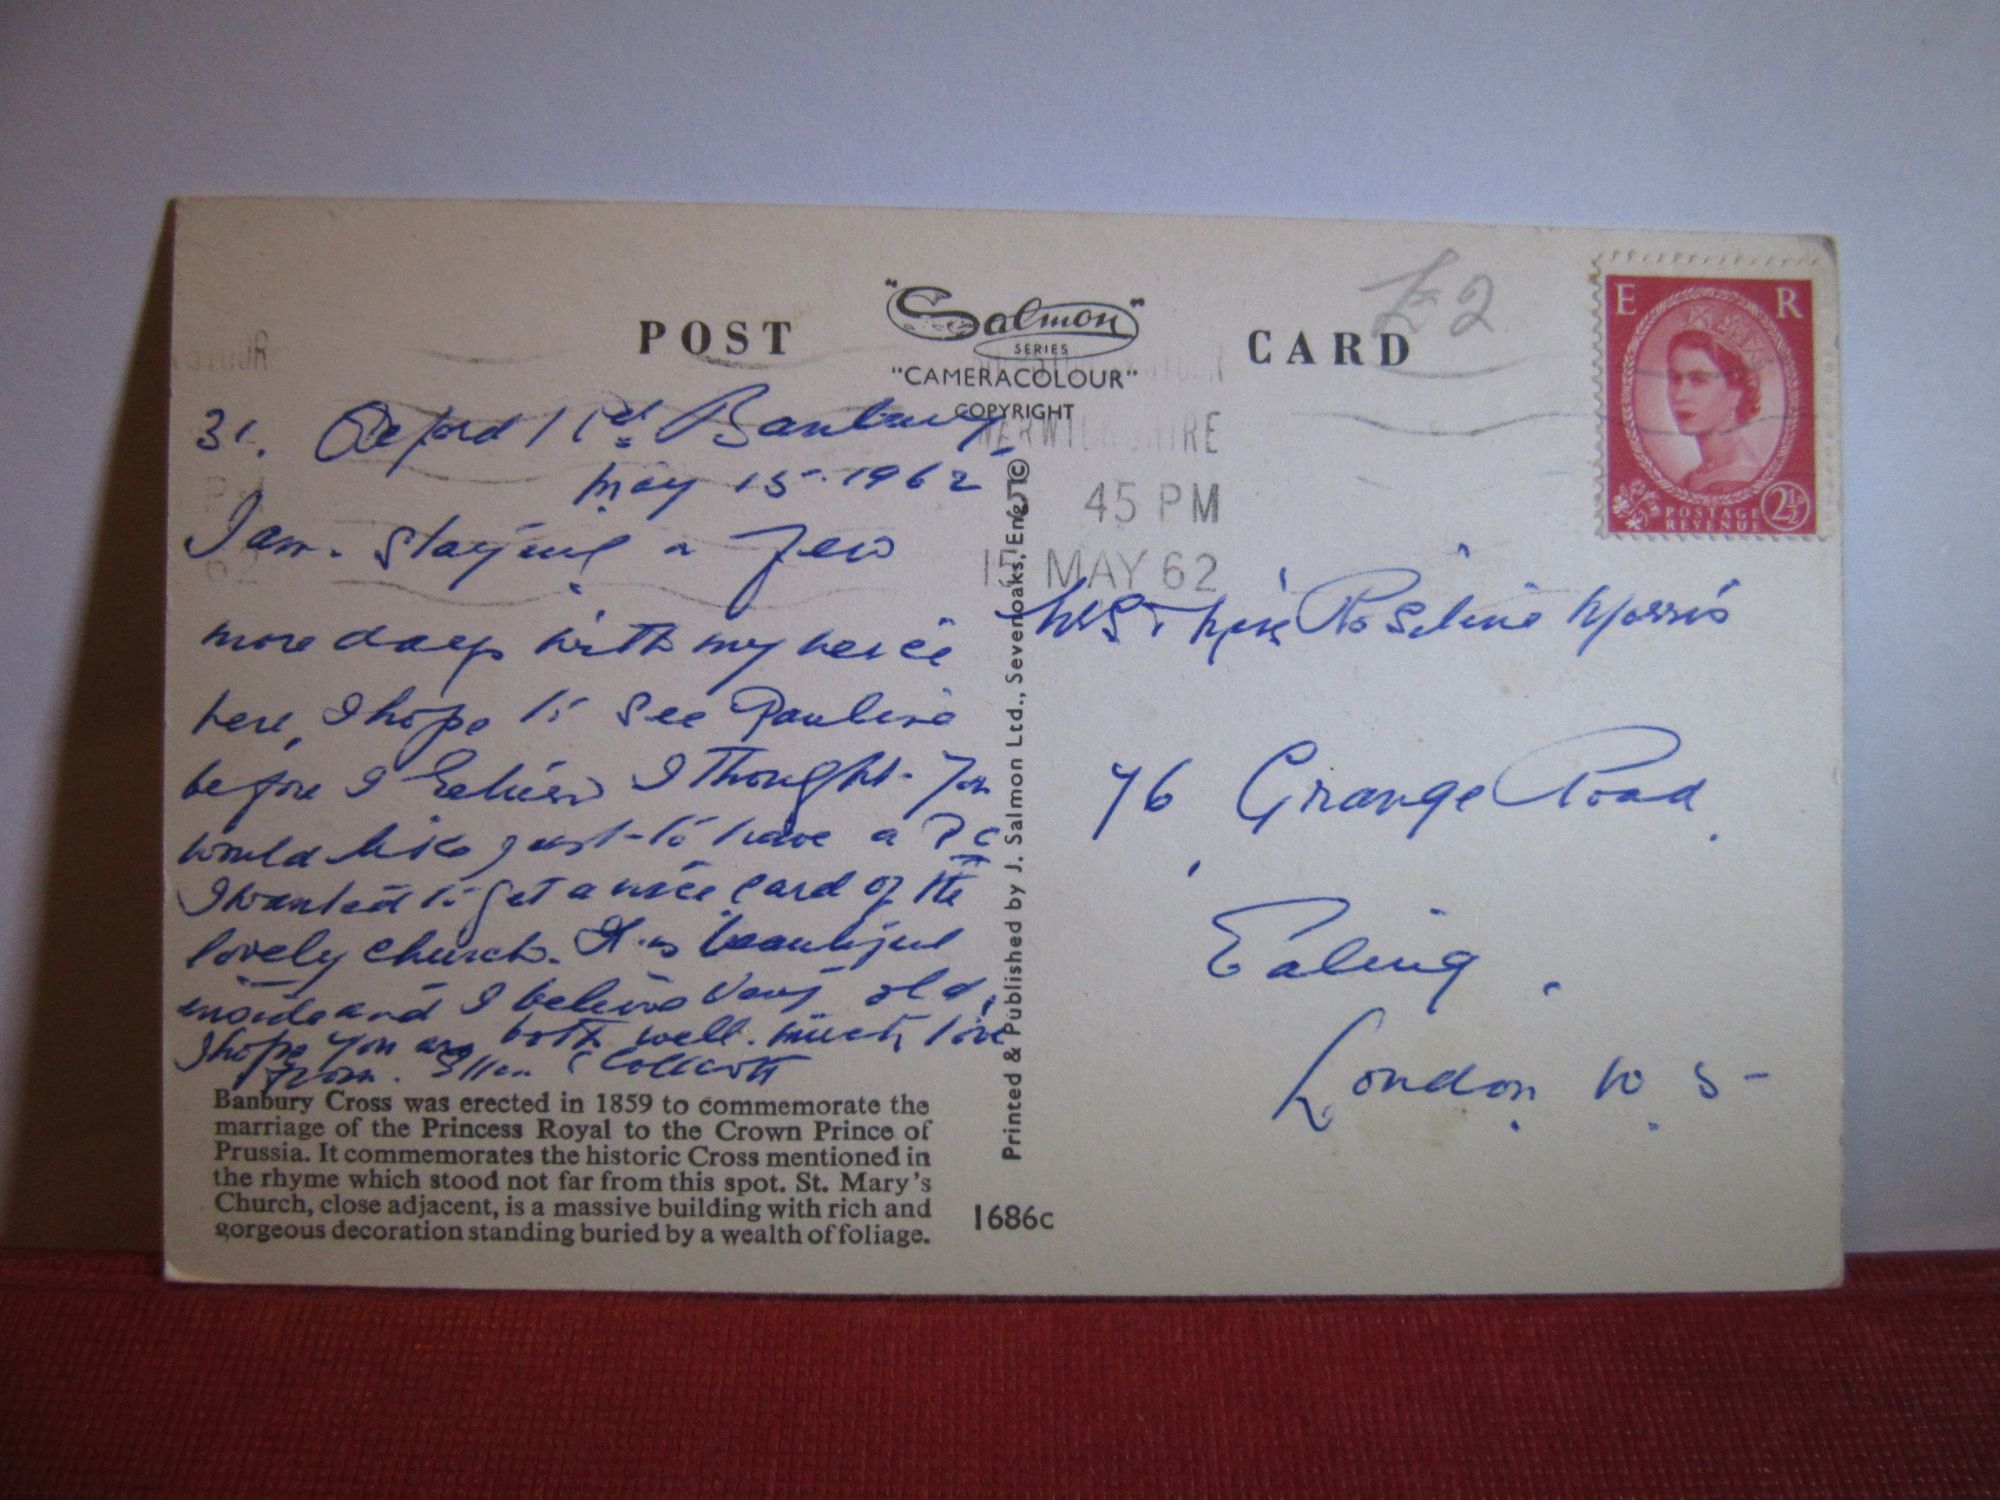 POST
"Salmon"
SERIES
"CAMERACOLOUR"
COPYRIGHT
CARD
£2
E R
POSTAGE
REVENUE
2½
WARWICKSHIRE
45 PM
15 MAY 62
31. Oxford Rd Banbury
May 15. 1962
I am staying a few
more days with my neice
here, I hope to see Pauline
before I I thought you
would like just to have a P C
I wanted to get a nice card of the
lovely church. It is beautiful
inside and I believe very old,
I hope you are both well. much love
from. Ellen
Banbury Cross was erected in 1859 to commemorate the
marriage of the Princess Royal to the Crown Prince of
Prussia. It commemorates the historic Cross mentioned in
the rhyme which stood not far from this spot. St. Mary's
Church, close adjacent, is a massive building with rich and
gorgeous decoration standing buried by a wealth of foliage.
Printed & Published by J. Salmon Ltd., Sevenoaks, Eng. ©
1686c
Miss Roseline Morris
76 Grange Road,
Ealing,
London. W. 5-